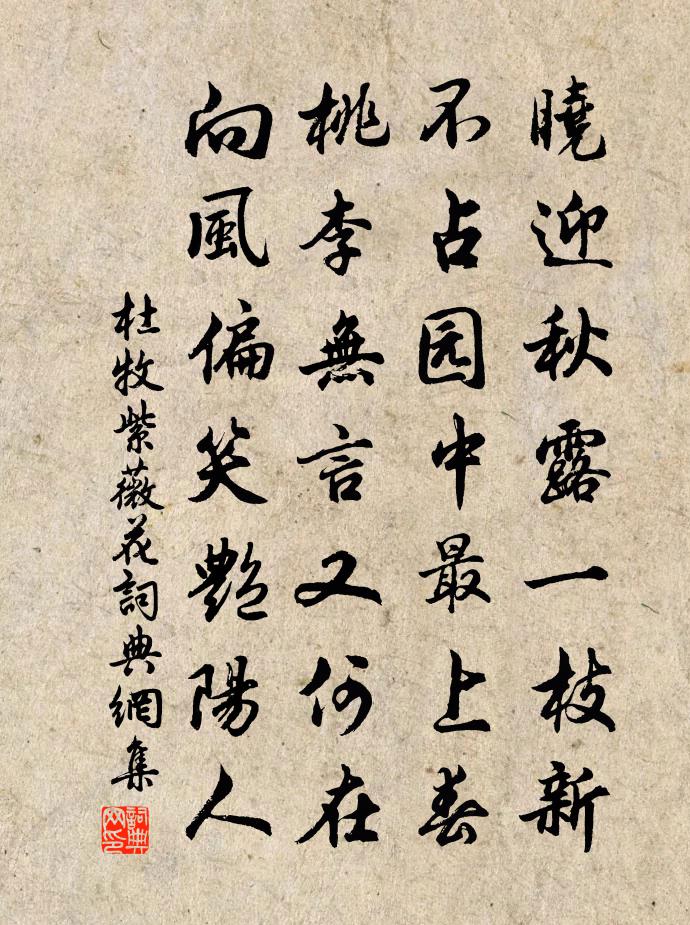 曉迎秋露一枝新
不占园中最上春
桃李無言又何在
向風偏笑艷陽人
杜牧紫薇花詞典網集
詞典网印